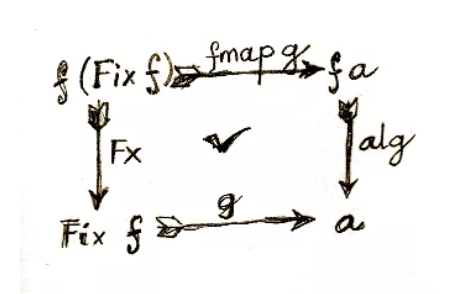 f (Fix f) fmap g f a
Fx alg
Fix f g a